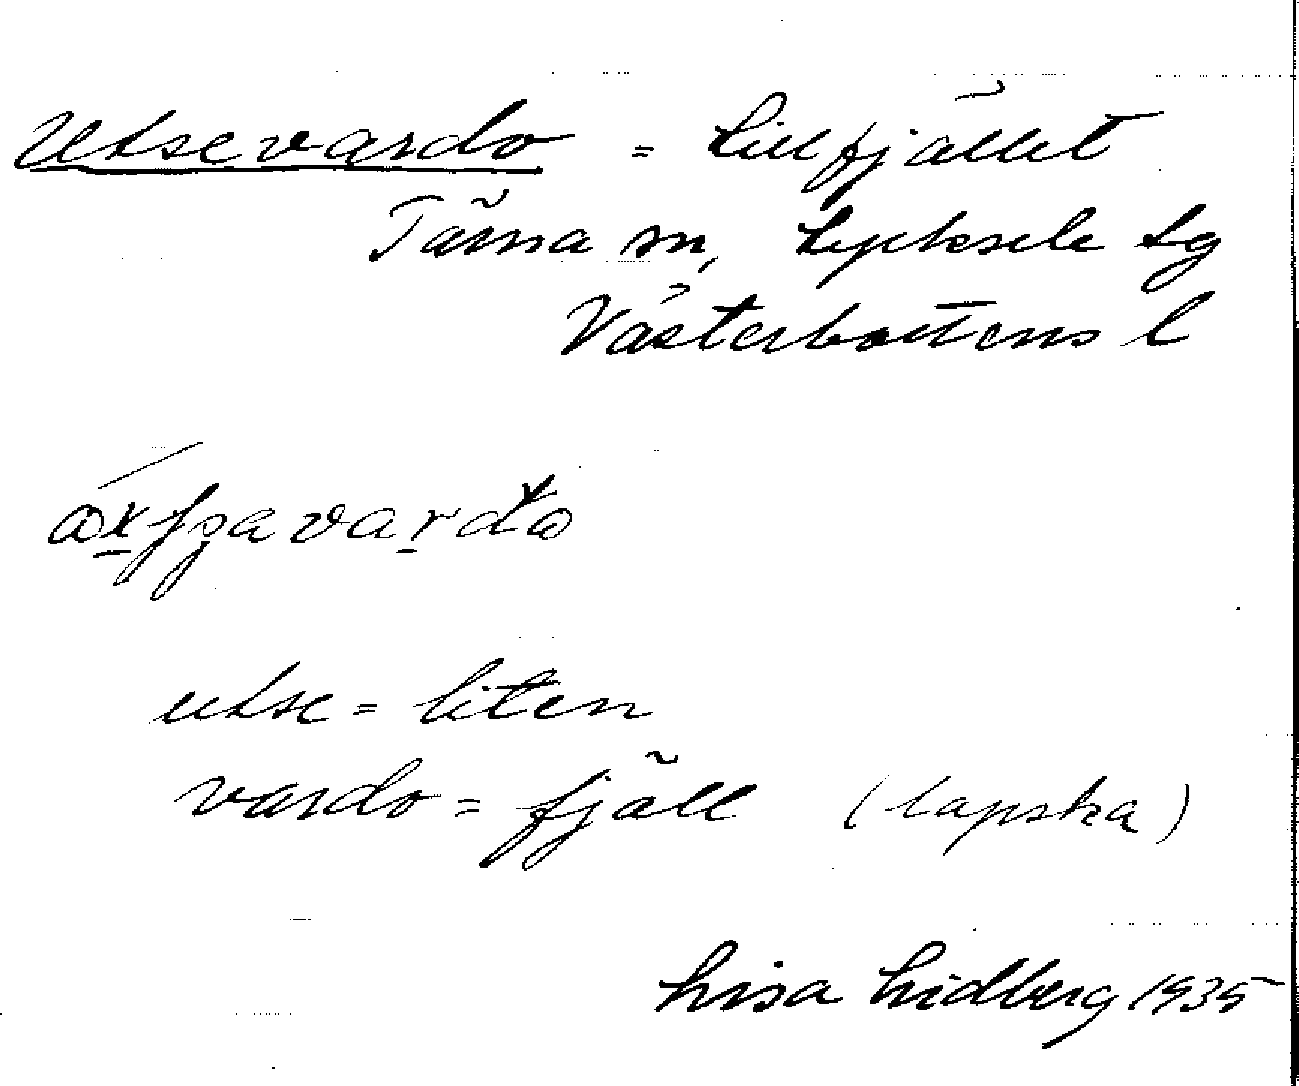 Utsevardo = Lillfjället
Tärna sn, Lycksele lg
Västerbottens l
utse = liten
vardo = fjäll (lapska)
Lisa Lidberg 1935